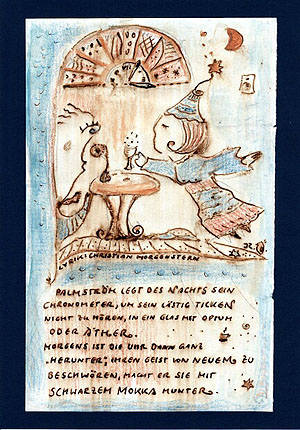 LYRIK: CHRISTIAN MORGENSTERN
PALMSTRÖM LEGT DES NACHTS SEIN
CHRONOMETER, UM SEIN LÄSTIG TICKEN
NICHT ZU HÖREN, IN EIN GLAS MIT OPIUM
ODER ÄTHER.
MORGENS IST DIE UHR DANN GANZ
"HERUNTER"; IHREN GEIST VON NEUEM ZU
BESCHWÖREN, MACHT ER SIE MIT
SCHWARZEM MOKKA MUNTER.